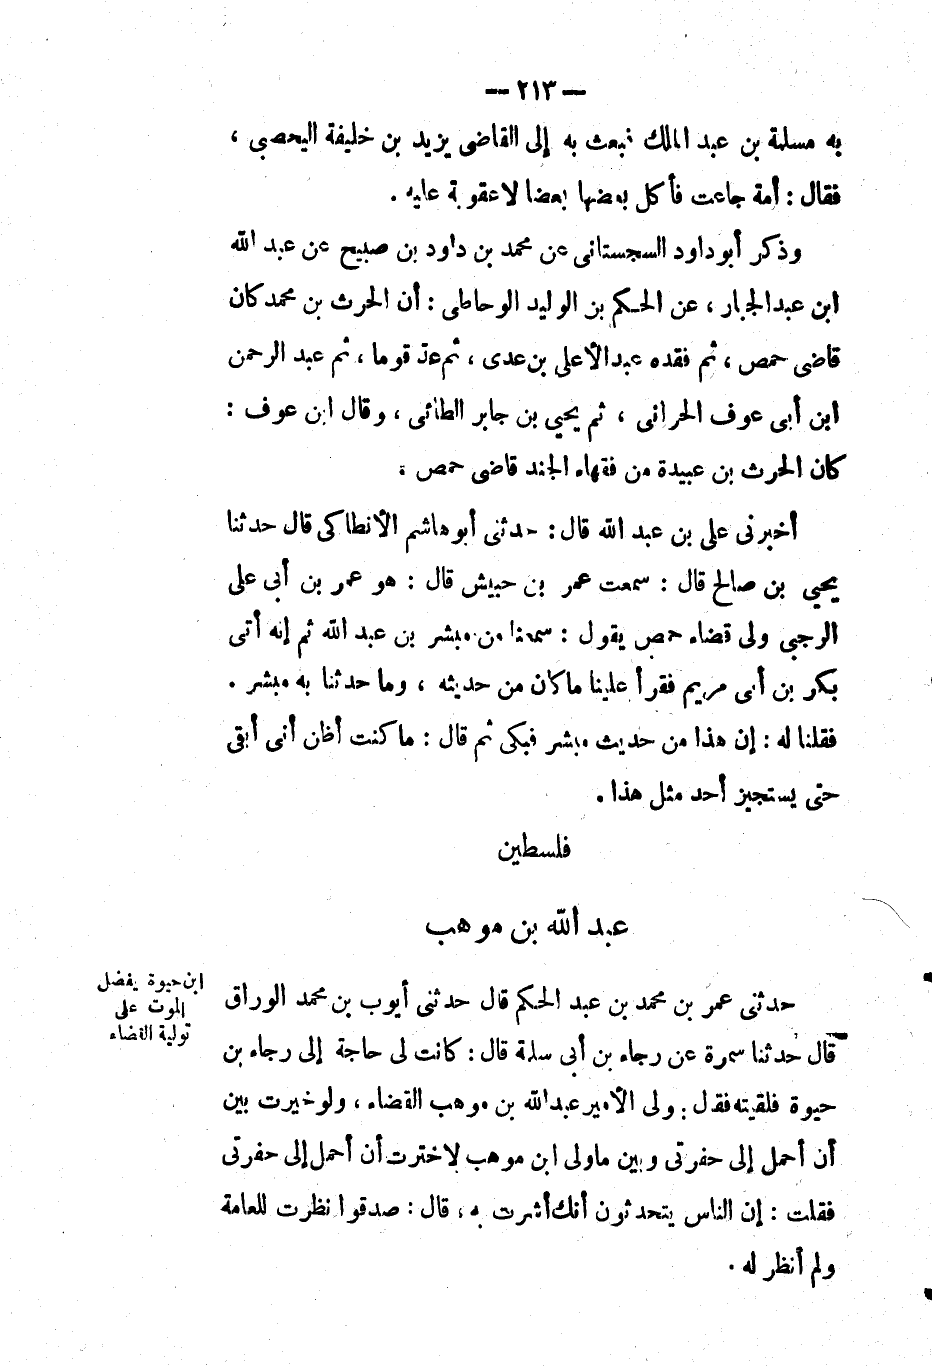 — ٢١٣ —
به مسلمة بن عبد الملك فبعث به إلى القاضى يزيد بن خليفة اليحصبى ،
فقال : أمة جاعت فأكل بعضها بعضا لاعقوبة عليه .
وذكر أبو داود السجستانى عن محمد بن داود بن صبيح عن عبد الله
ابن عبد الجبار ، عن الحكم بن الوليد الوحاطى : أن الحرث بن محمد كان
قاضى حمص ، ثم فقده عبد الأعلى بن عدى ، ثم قوما ، ثم عبد الرحمن
ابن أبى عوف الحرانى ، ثم يحيى بن جابر الطائى ، وقال ابن عوف :
كان الحرث بن عبيدة من فقهاء الجند قاضى حمص .
أخبرنى على بن عبد الله قال : حدثنى أبو هاشم الأنطاكى قال حدثنا
يحيى بن صالح قال : سمعت عمر بن حبيش قال : هو عمر بن أبى على
الرجبى ولى قضاء حمص يقول : سمعنا من مبشر بن عبد الله ثم إنه أتى
بكر بن أبى مريم فقرأ علينا ماكان من حديثه ، وما حدثنا به مبشر .
فقلنا له : إن هذا من حديث مبشر فبكى ثم قال : ماكنت أظن أنى أبقى
حتى يستجيز أحد مثل هذا .
فلسطين
عبد الله بن موهب
ابن حيوة يفضل
الموت على
تولية القضاء
حدثنى عمر بن محمد بن عبد الحكم قال حدثنى أيوب بن محمد الوراق
قال حدثنا سمرة عن رجاء بن أبى سلمة قال : كانت لى حاجة إلى رجاء بن
حيوة فلقيته فقال : ولى الأمير عبد الله بن موهب القضاء ، ولو خيرت بين
أن أحمل إلى حفرتى وبين ماولى ابن موهب لاخترت أن أحمل إلى حفرتى
فقلت : إن الناس يتحدثون أنك أشرت به ، قال : صدقوا نظرت للعامة
ولم أنظر له .